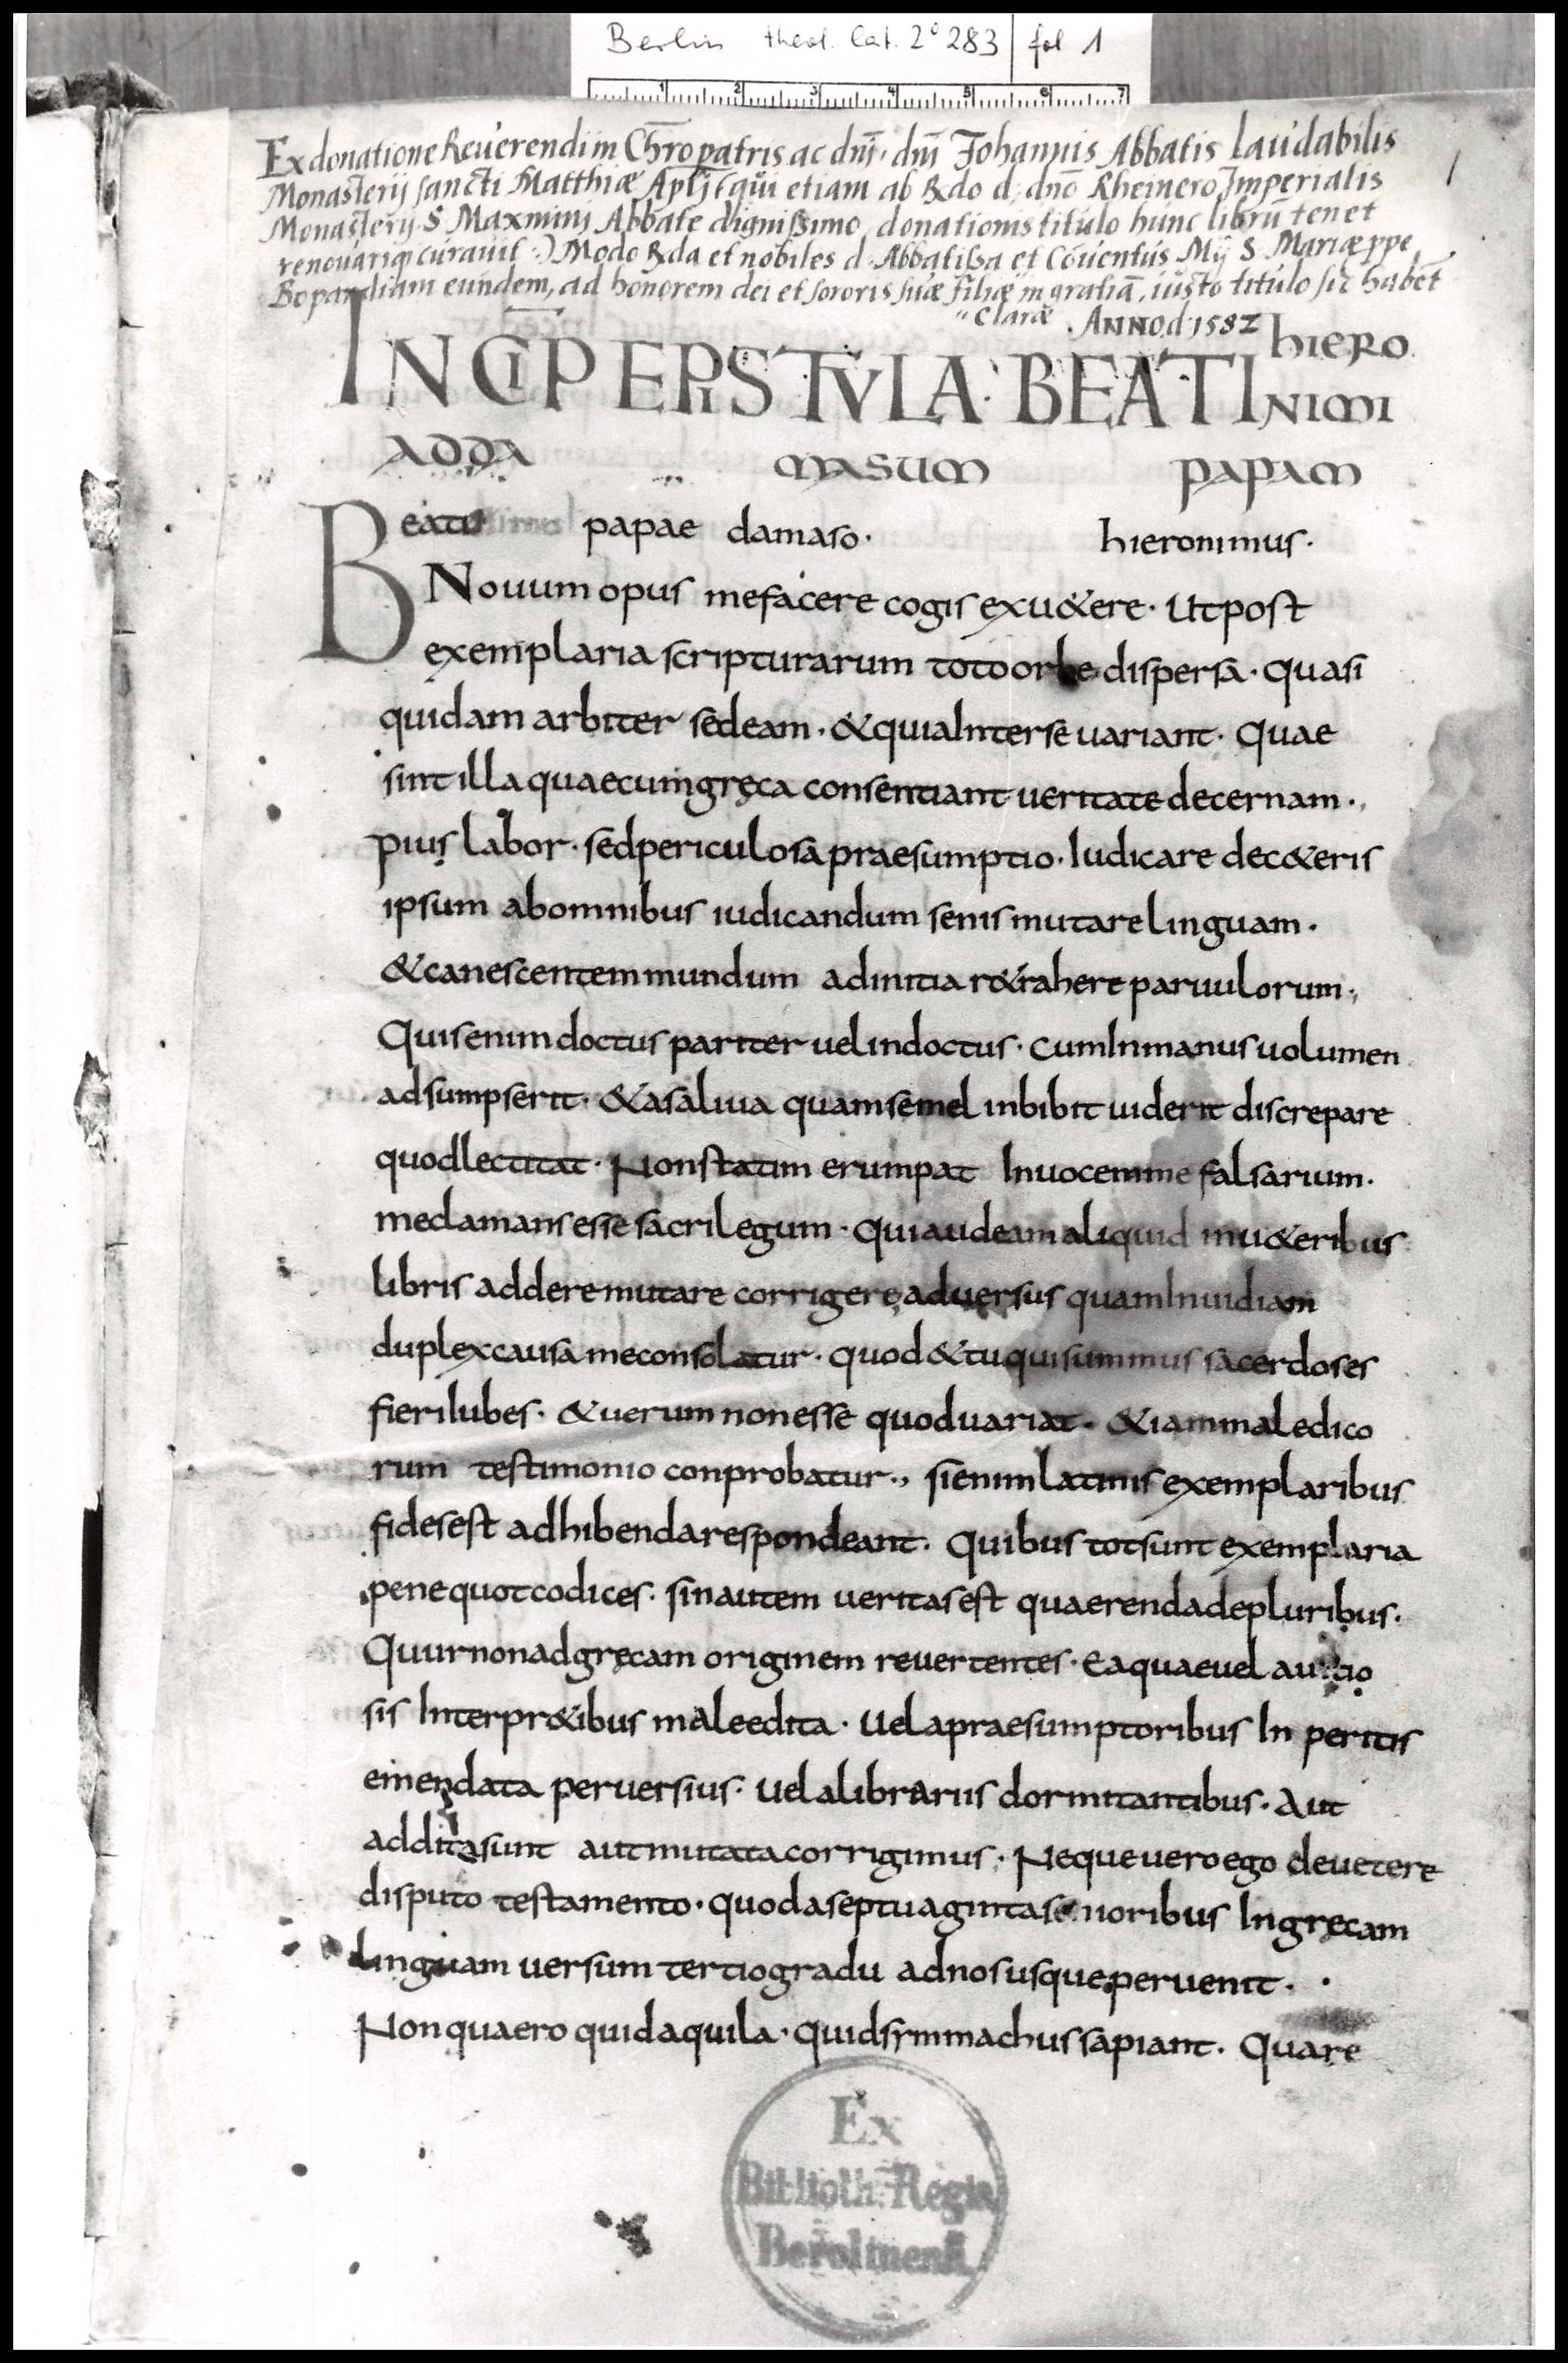 Berlin theol. lat. 2° 283 fol 1
1 2 3 4 5 6 7
Ex donatione Reuerendi in Chro patris ac dni, dni Johannis Abbatis Laudabilis
Monasterij sancti Matthiæ Aplj (qui etiam ab Rdo d, dno Rheinero Imperialis
Monastery S Maximini Abbate dignissimo, donationis titulo hunc librū tenet
renouariq curauit :) Modo Rda et nobiles d. Abbatissa et Cōuentus Mȳ S Mariæ ppe
Bopardiam eundem, ad honorem dei et sororis suæ filiæ in gratiā, iusto titulo sic habēt
Claræ . ANNO d 1582
INCIP EPISTVLA· BEATI hIERO
NIMI
ADDA MASUM PAPAM
Beatissimo papae damaso· hieronimus·
Nouum opus mefacere cogis exu&ere· Utpost
exemplaria scripturarum totoorbe dispersa· quasi
quidam arbiter sedeam· &quiaInterse uariant· Quae
sint illa quaecumgręca consentiant ueritate decernam·,
pius labor· sedpericulosa praesumptio· Iudicare dec&eris
ipsum abomnibus iudicandum senis mutare linguam·
&canescentem mundum adinitia r&rahere paruulorum·,
Quisenim doctus pariter uelindoctus· cumInmanus uolumen
adsumpserit· &asaliua quamsemel inbibit uiderit discrepare
quodlectitat· Nonstatim erumpat Inuocemme falsarium·
meclamans esse sacrilegum· Quiaudeam aliquid inu&eribus
libris addere mutare corrigere, aduersus quamInuidiam
duplexcausa meconsolatur· quod &tu quisummus sacerdoses
fieriIubes· &uerum nonesse quoduariat· &iammaledico
rum testimonio conprobatur·, sienim latinis exemplaribus
fidesest adhibenda respondeant· Quibus totsunt exemplaria
penequotcodices· sinautem ueritasest quaerenda depluribus·
Quurnonadgręcam originem reuertentes· Eaquaeuel auitio
sis Interpr&ibus maleedita· Uelapraesumptoribus In peritis
emendata peruersius· Uelalibrariis dormitantibus· Aut
additasunt autmutata corrigimus· Nequeueroego deuetere
disputo testamento· quodaseptuagintasenioribus Ingręcam
linguam uersum tertiogradu adnosusqueperuenit· ·
Nonquaero quidaquila· quidsymmachus sapiant· Quare
Ex
Biblioth. Regia
Berolinenſi.